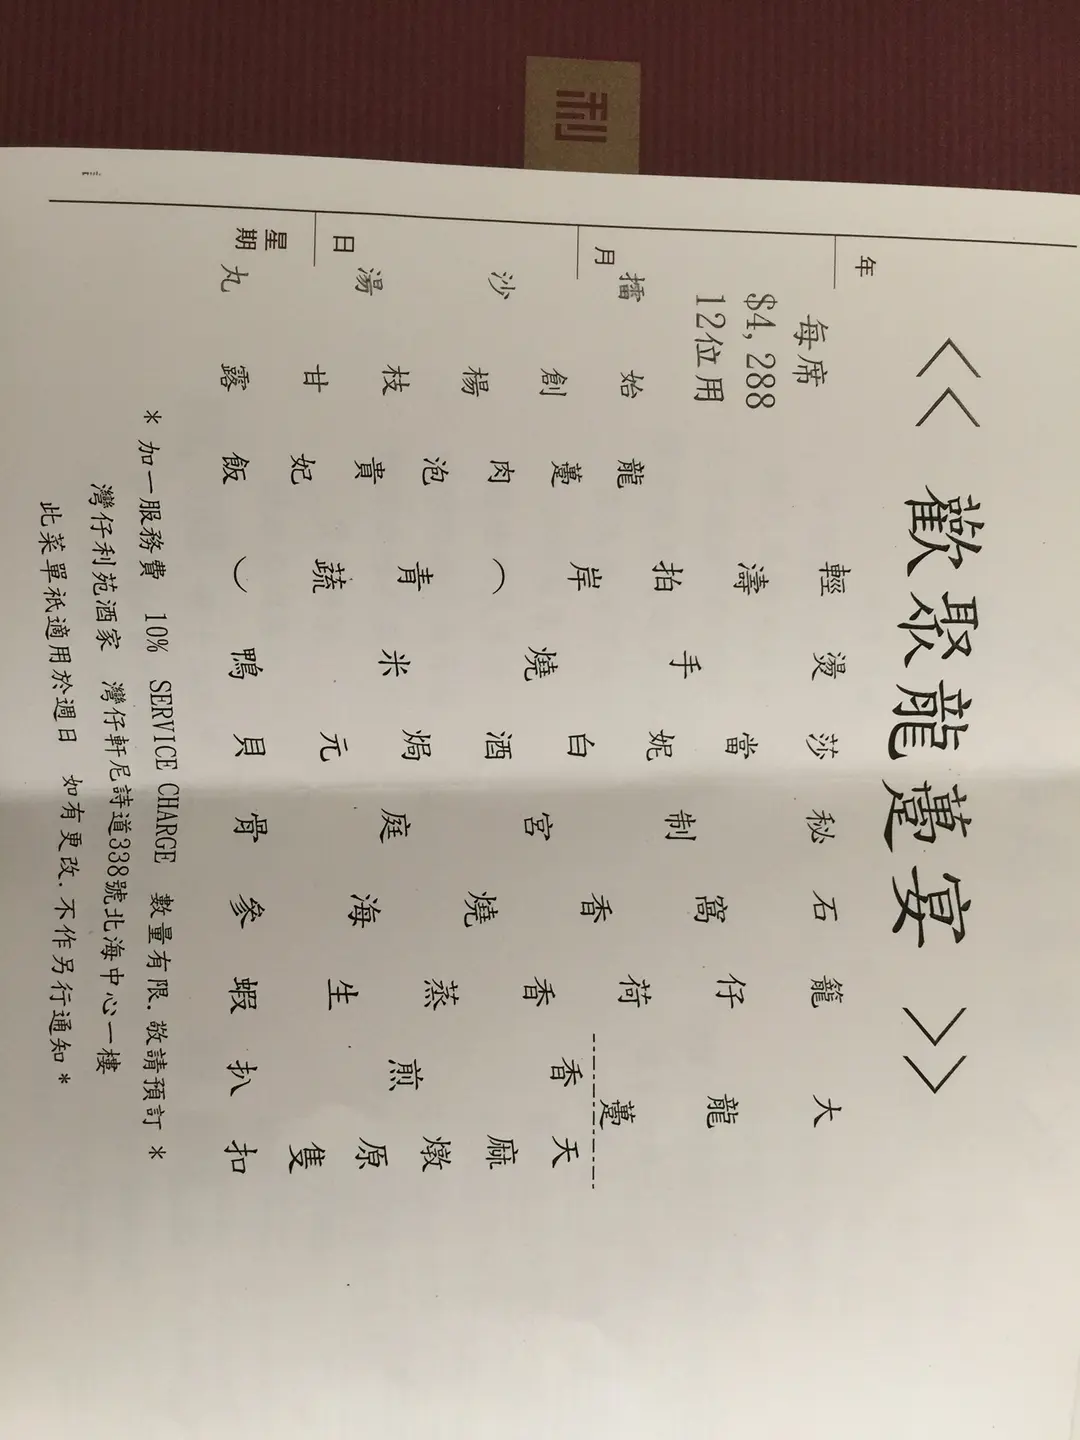 利
<< 歡聚龍躉宴 >>
大龍躉
天麻燉原隻扣
香煎扒
籠仔荷香蒸生蝦
石窩香燒海參
秘制宮庭骨
莎當妮白酒焗元貝
燙手燒米鴨
輕濤拍岸（青蔬）
龍躉肉泡貴妃飯
始創楊枝甘露
擂沙湯丸
每席
$4,288
12位用
年 月 日 星期
* 加一服務費 10% SERVICE CHARGE 數量有限.敬請預訂 *
灣仔利苑酒家 灣仔軒尼詩道338號北海中心一樓
此菜單祇適用於週日 如有更改.不作另行通知*